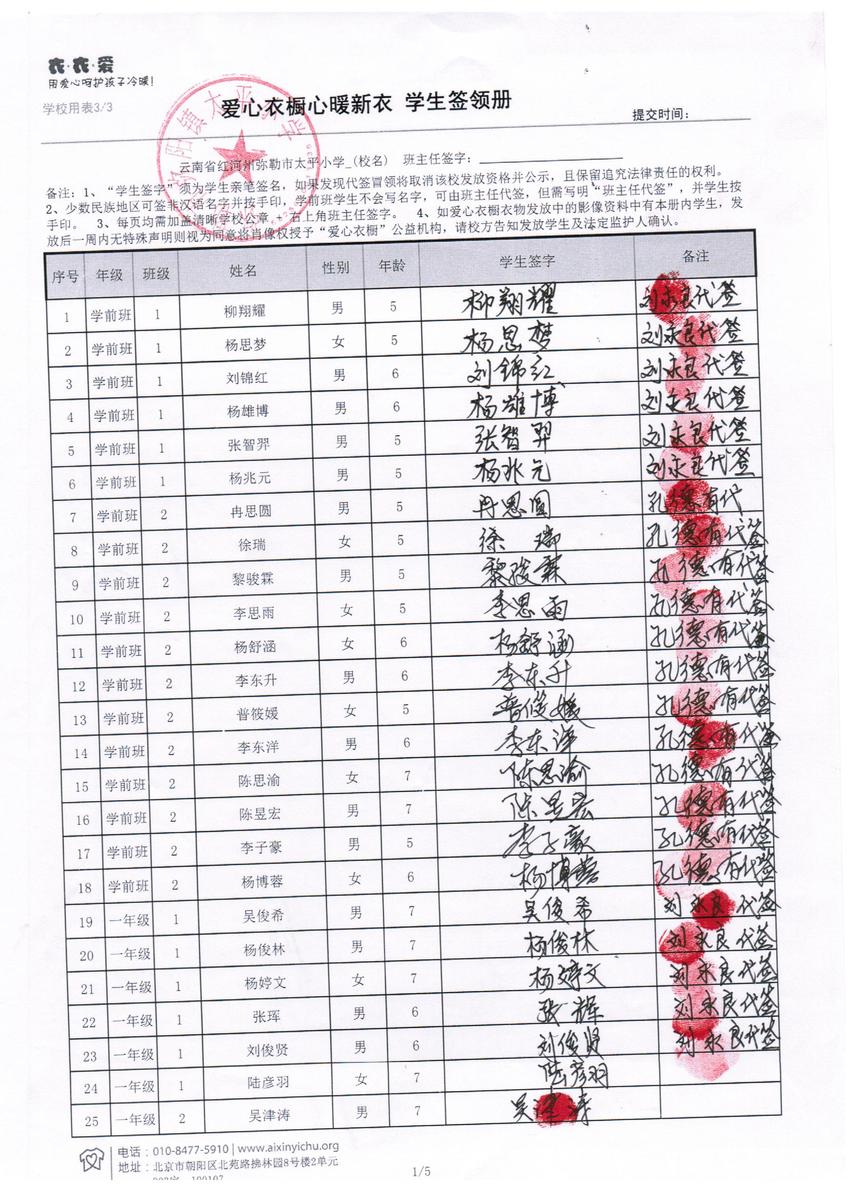 衣·衣·爱
用爱心呵护孩子冷暖!
学校用表3/3
爱心衣橱心暖新衣 学生签领册
提交时间:
太平小学
云南省红河州弥勒市太平小学_(校名) 班主任签字:
备注: 1、“学生签字”须为学生亲笔签名,如果发现代签冒领将取消该校发放资格并公示,且保留追究法律责任的权利。
2、少数民族地区可签非汉语名字并按手印,学前班学生不会写名字,可由班主任代签,但需写明“班主任代签”,并学生按
手印。 3、每页均需加盖清晰学校公章 + 右上角班主任签字。 4、如爱心衣橱衣物发放中的影像资料中有本册内学生,发
放后一周内无特殊声明则视为同意将肖像权授予“爱心衣橱”公益机构,请校方告知发放学生及法定监护人确认。
序号 年级 班级 姓名 性别 年龄 学生签字 备注
1 学前班 1 柳翔耀 男 5 柳翔耀 刘永良代签
2 学前班 1 杨思梦 女 5 杨思梦 刘永良代签
3 学前班 1 刘锦红 男 6 刘锦红 刘永良代签
4 学前班 1 杨雄博 男 6 杨雄博 刘永良代签
5 学前班 1 张智羿 男 5 张智羿 刘永良代签
6 学前班 1 杨兆元 男 5 杨兆元 刘永良代签
7 学前班 2 冉思圆 男 5 冉思圆 孔德有代
8 学前班 2 徐瑞 女 5 徐瑞 孔德有代签
9 学前班 2 黎骏霖 男 5 黎骏霖 孔德有代签
10 学前班 2 李思雨 女 5 李思雨 孔德有代签
11 学前班 2 杨舒涵 女 6 杨舒涵 孔德有代签
12 学前班 2 李东升 男 6 李东升 孔德有代签
13 学前班 2 普筱媛 女 5 普俊媛 孔德有代签
14 学前班 2 李东洋 男 6 李东洋 孔德有代签
15 学前班 2 陈思渝 女 7 陈思渝 孔德有代签
16 学前班 2 陈昱宏 男 7 陈昱宏 孔德有代签
17 学前班 2 李子豪 男 5 李子豪 孔德有代签
18 学前班 2 杨博蓉 女 6 杨博蓉 孔德有代签
19 一年级 1 吴俊希 男 7 吴俊希 刘永良代签
20 一年级 1 杨俊林 男 7 杨俊林 刘永良代签
21 一年级 1 杨婷文 女 7 杨婷文 刘永良代签
22 一年级 1 张珲 男 6 张辉 刘永良代签
23 一年级 1 刘俊贤 男 6 刘俊贤 刘永良代签
24 一年级 1 陆彦羽 女 7 陆彦羽
25 一年级 2 吴津涛 男 7 吴津涛
电话:010-8477-5910 | www.aixinyichu.org
地址:北京市朝阳区北苑路拂林园8号楼2单元
1/5